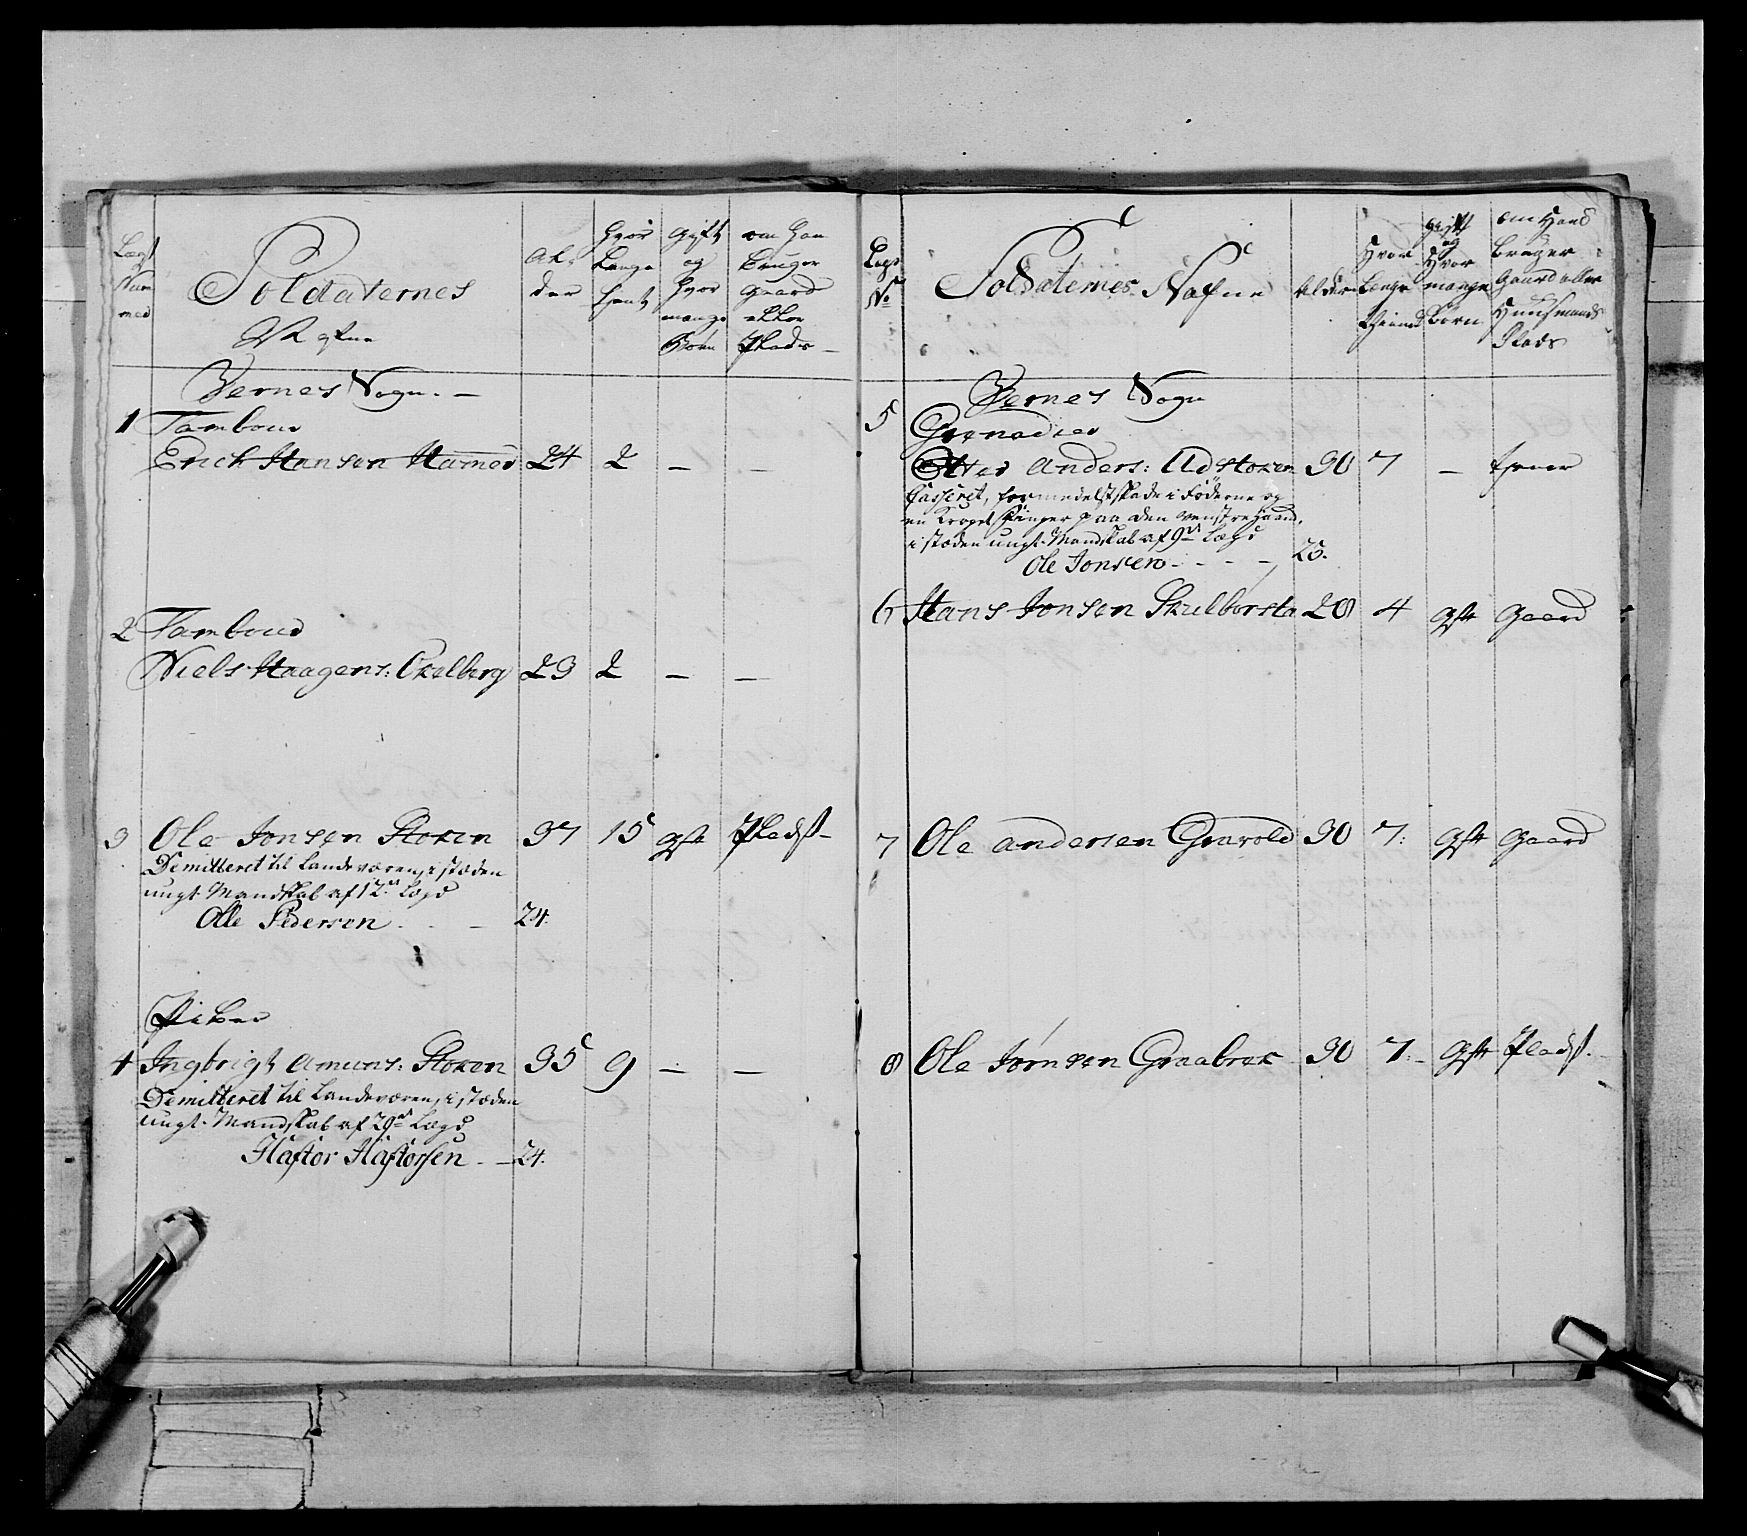 Lægs
Num
mer
Soldaternes
Nafne
Al-
der
Hvor
Længe
tient
Gift
og
Hvor
mange
Børn
om Han
bruger
Gaard
eller
Plads
Vernes Sogn. —
1 Tambour
Erich Hansen Hamer 24 2 — —
2 Tambour
Niels Haagens: Ekelberg 23 2 — —
3 Ole Jonsen Stoken 37 15 gft Pladst—
Demitteret til Landeværen, i stæden
ungt Mandskab af 12te Lægd
Olle Pedersen . . — 24.
Piber
4 Ingbrigt Amuns: Stoken 35 9 — —
Demitteret til Landeværen, i stæden
ungt Mandskab af 29de Lægd
Haftor Haftorsen . — 24.
Lægs
No
Soldaternes Nafne
Alder
Hvor
Længe
thient
gift
og
Hvor
mange
Børn
om Hand
bruger
Gaard eller
Huusmands
Plads
Vernes Sogn
5 Grenadeer
Anders: Udstoken 30 7 — tiener
Casseret, formedelst skade i Føderne og
en Kroget Finger paa den venstre Haand,
i stæden ungt Mandskab af 9de Lægd
Ole Jonsen - - - - 23.
6 Hans Jonsen Skulborsta 28 4 gft Gaard
7 Ole Andersen Gravold 30 7: gft Gaard
8 Ole Jørnsen Graabrek 30 7:- gft Pladst.